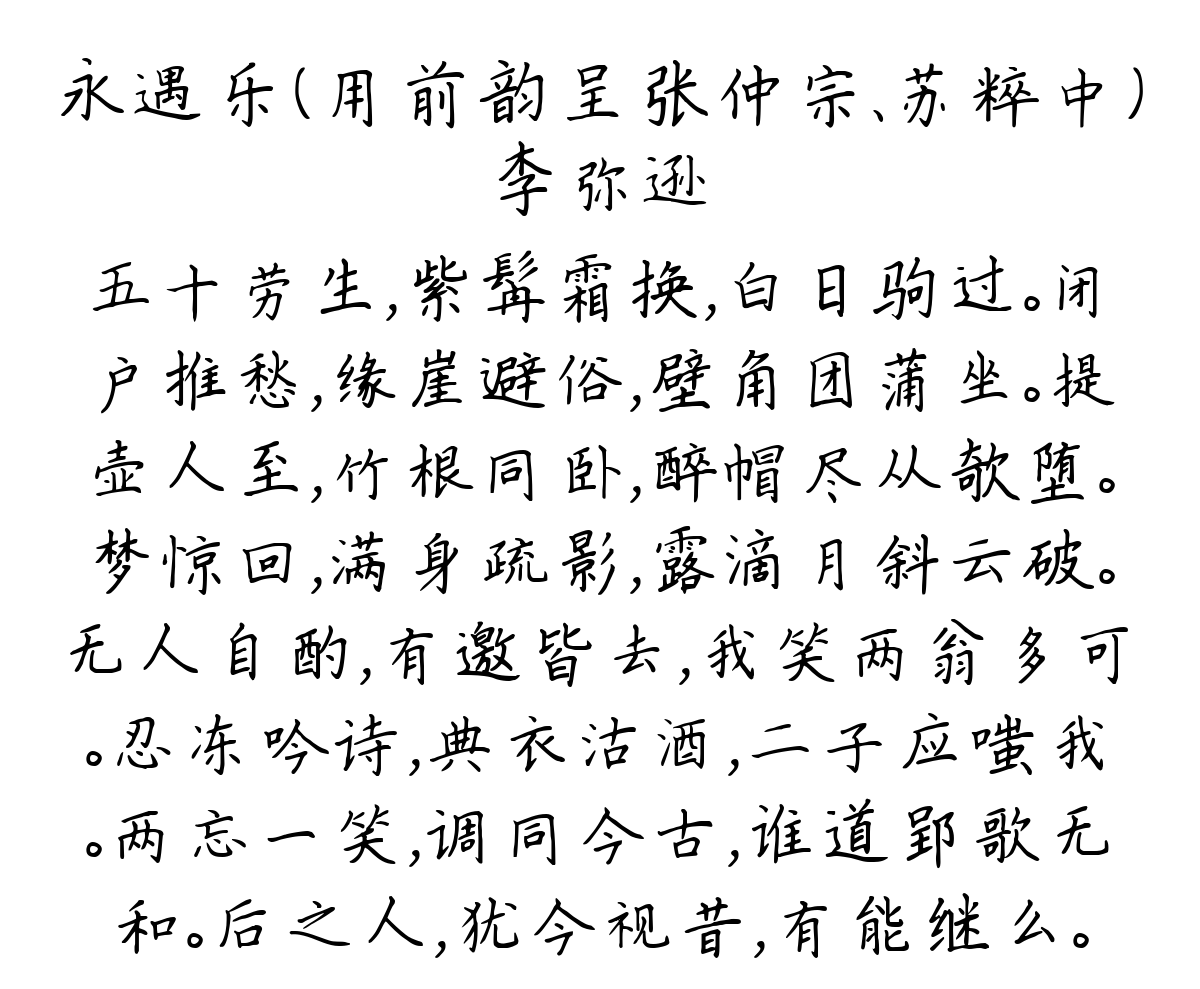 永遇乐(用前韵呈张仲宗、苏粹中)
李弥逊
五十劳生,紫髯霜换,白日驹过。闭
户推愁,缘崖避俗,壁角团蒲坐。提
壶人至,竹根同卧,醉帽尽从欹堕。
梦惊回,满身疏影,露滴月斜云破。
无人自酌,有邀皆去,我笑两翁多可
。忍冻吟诗,典衣沽酒,二子应嗤我
。两忘一笑,调同今古,谁道郢歌无
和。后之人,犹今视昔,有能继么。